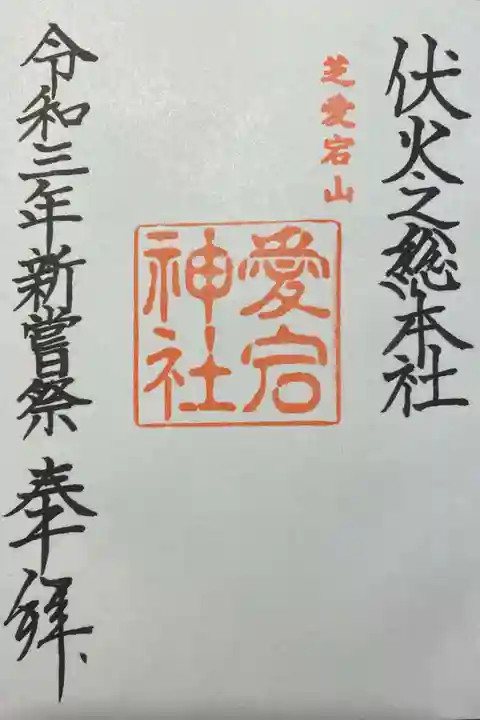 伏火之総本社
芝愛宕山
愛宕
神社
令和三年新嘗祭 奉拝